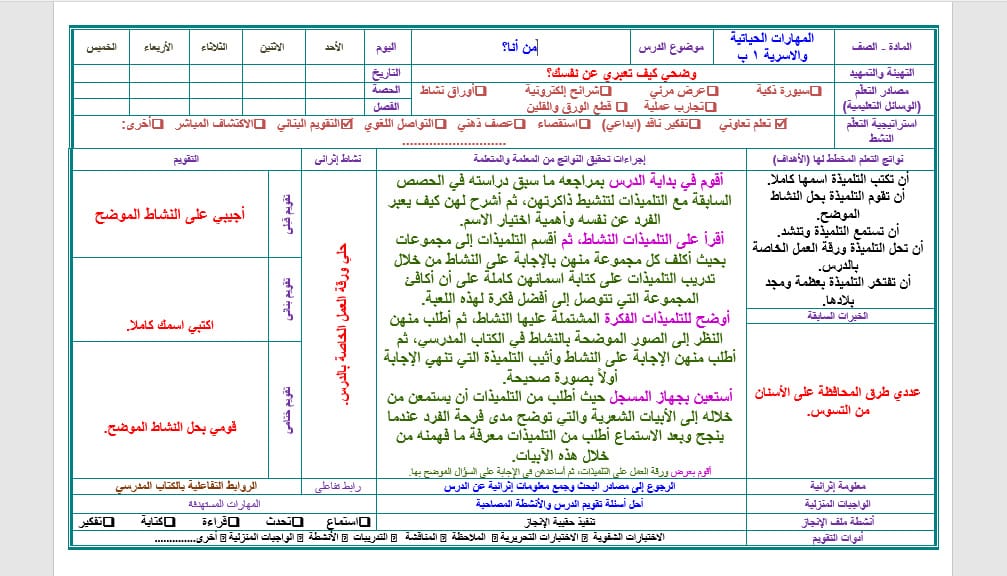 المادة - الصف
المهارات الحياتية والاسرية ١ ب
موضوع الدرس
من أنا؟
اليوم
الأحد
الاثنين
الثلاثاء
الأربعاء
الخميس
التهيئة والتمهيد
وضحي كيف تعبري عن نفسك؟
التاريخ
مصادر التعلّم (الوسائل التعليمية)
❑سبورة ذكية ❑عرض مرئي ❑شرائح إلكترونية ❑أوراق نشاط
❑تجارب عملية ❑ قطع الورق والفلين
الحصة
الفصل
استراتيجية التعلم النشط
☑ تعلم تعاوني ❑تفكير ناقد (ابداعي) ❑استقصاء ❑عصف ذهني ❑التواصل اللغوي ☑التقويم البنائي ❑الاكتشاف المباشر ❑أخرى:
..........................
نواتج التعلم المخطط لها (الأهداف)
إجراءات تحقيق النواتج من المعلمة والمتعلمة
نشاط إثرائي
التقويم
أن تكتب التلميذة اسمها كاملا.
أن تقوم التلميذة بحل النشاط
الموضح.
أن تستمع التلميذة وتنشد.
أن تحل التلميذة ورقة العمل الخاصة
بالدرس.
أن تفتخر التلميذة بعظمة ومجد
بلادها.
الخبرات السابقة
عددي طرق المحافظة على الأسنان
من التسوس.
أقوم في بداية الدرس بمراجعه ما سبق دراسته في الحصص
السابقة مع التلميذات لتنشيط ذاكرتهن، ثم أشرح لهن كيف يعبر
الفرد عن نفسه وأهمية اختيار الاسم.
أقرأ على التلميذات النشاط، ثم أقسم التلميذات إلى مجموعات
بحيث أكلف كل مجموعة منهن بالإجابة على النشاط من خلال
تدريب التلميذات على كتابة اسمائهن كاملة على أن أكافئ
المجموعة التي تتوصل إلى أفضل فكرة لهذه اللعبة.
أوضح للتلميذات الفكرة المشتملة عليها النشاط، ثم أطلب منهن
النظر إلى الصور الموضحة بالنشاط في الكتاب المدرسي، ثم
أطلب منهن الإجابة على النشاط وأثيب التلميذة التي تنهي الإجابة
أولاً بصورة صحيحة.
أستعين بجهاز المسجل حيث أطلب من التلميذات أن يستمعن من
خلاله إلى الأبيات الشعرية والتي توضح مدى فرحة الفرد عندما
ينجح وبعد الاستماع أطلب من التلميذات معرفة ما فهمنه من
خلال هذه الآبيات.
أقوم بعرض ورقة العمل على التلميذات، ثم أساعدهن في الإجابة على السؤال الموضح بها.
حلي ورقة العمل الخاصة بالدرس.
تقويم قبلي
أجيبي على النشاط الموضح
تقويم بنائي
اكتبي اسمك كاملا.
تقويم ختامي
قومي بحل النشاط الموضح.
معلومة إثرائية
الرجوع إلى مصادر البحث وجمع معلومات إثرائية عن الدرس
رابط تفاعلي
الروابط التفاعلية بالكتاب المدرسي
الواجبات المنزلية
أحل أسئلة تقويم الدرس والأنشطة المصاحبة
المهارات المستهدفه
أنشطة ملف الإنجاز
تنفيذ حقيبة الإنجاز
❑استماع ❑تحدث ❑قراءة ❑كتابة ❑تفكير
أدوات التقويم
الاختبارات الشفوية الاختبارات التحريرية الملاحظة المناقشة التدريبات الأنشطة الواجبات المنزلية أخرى..............